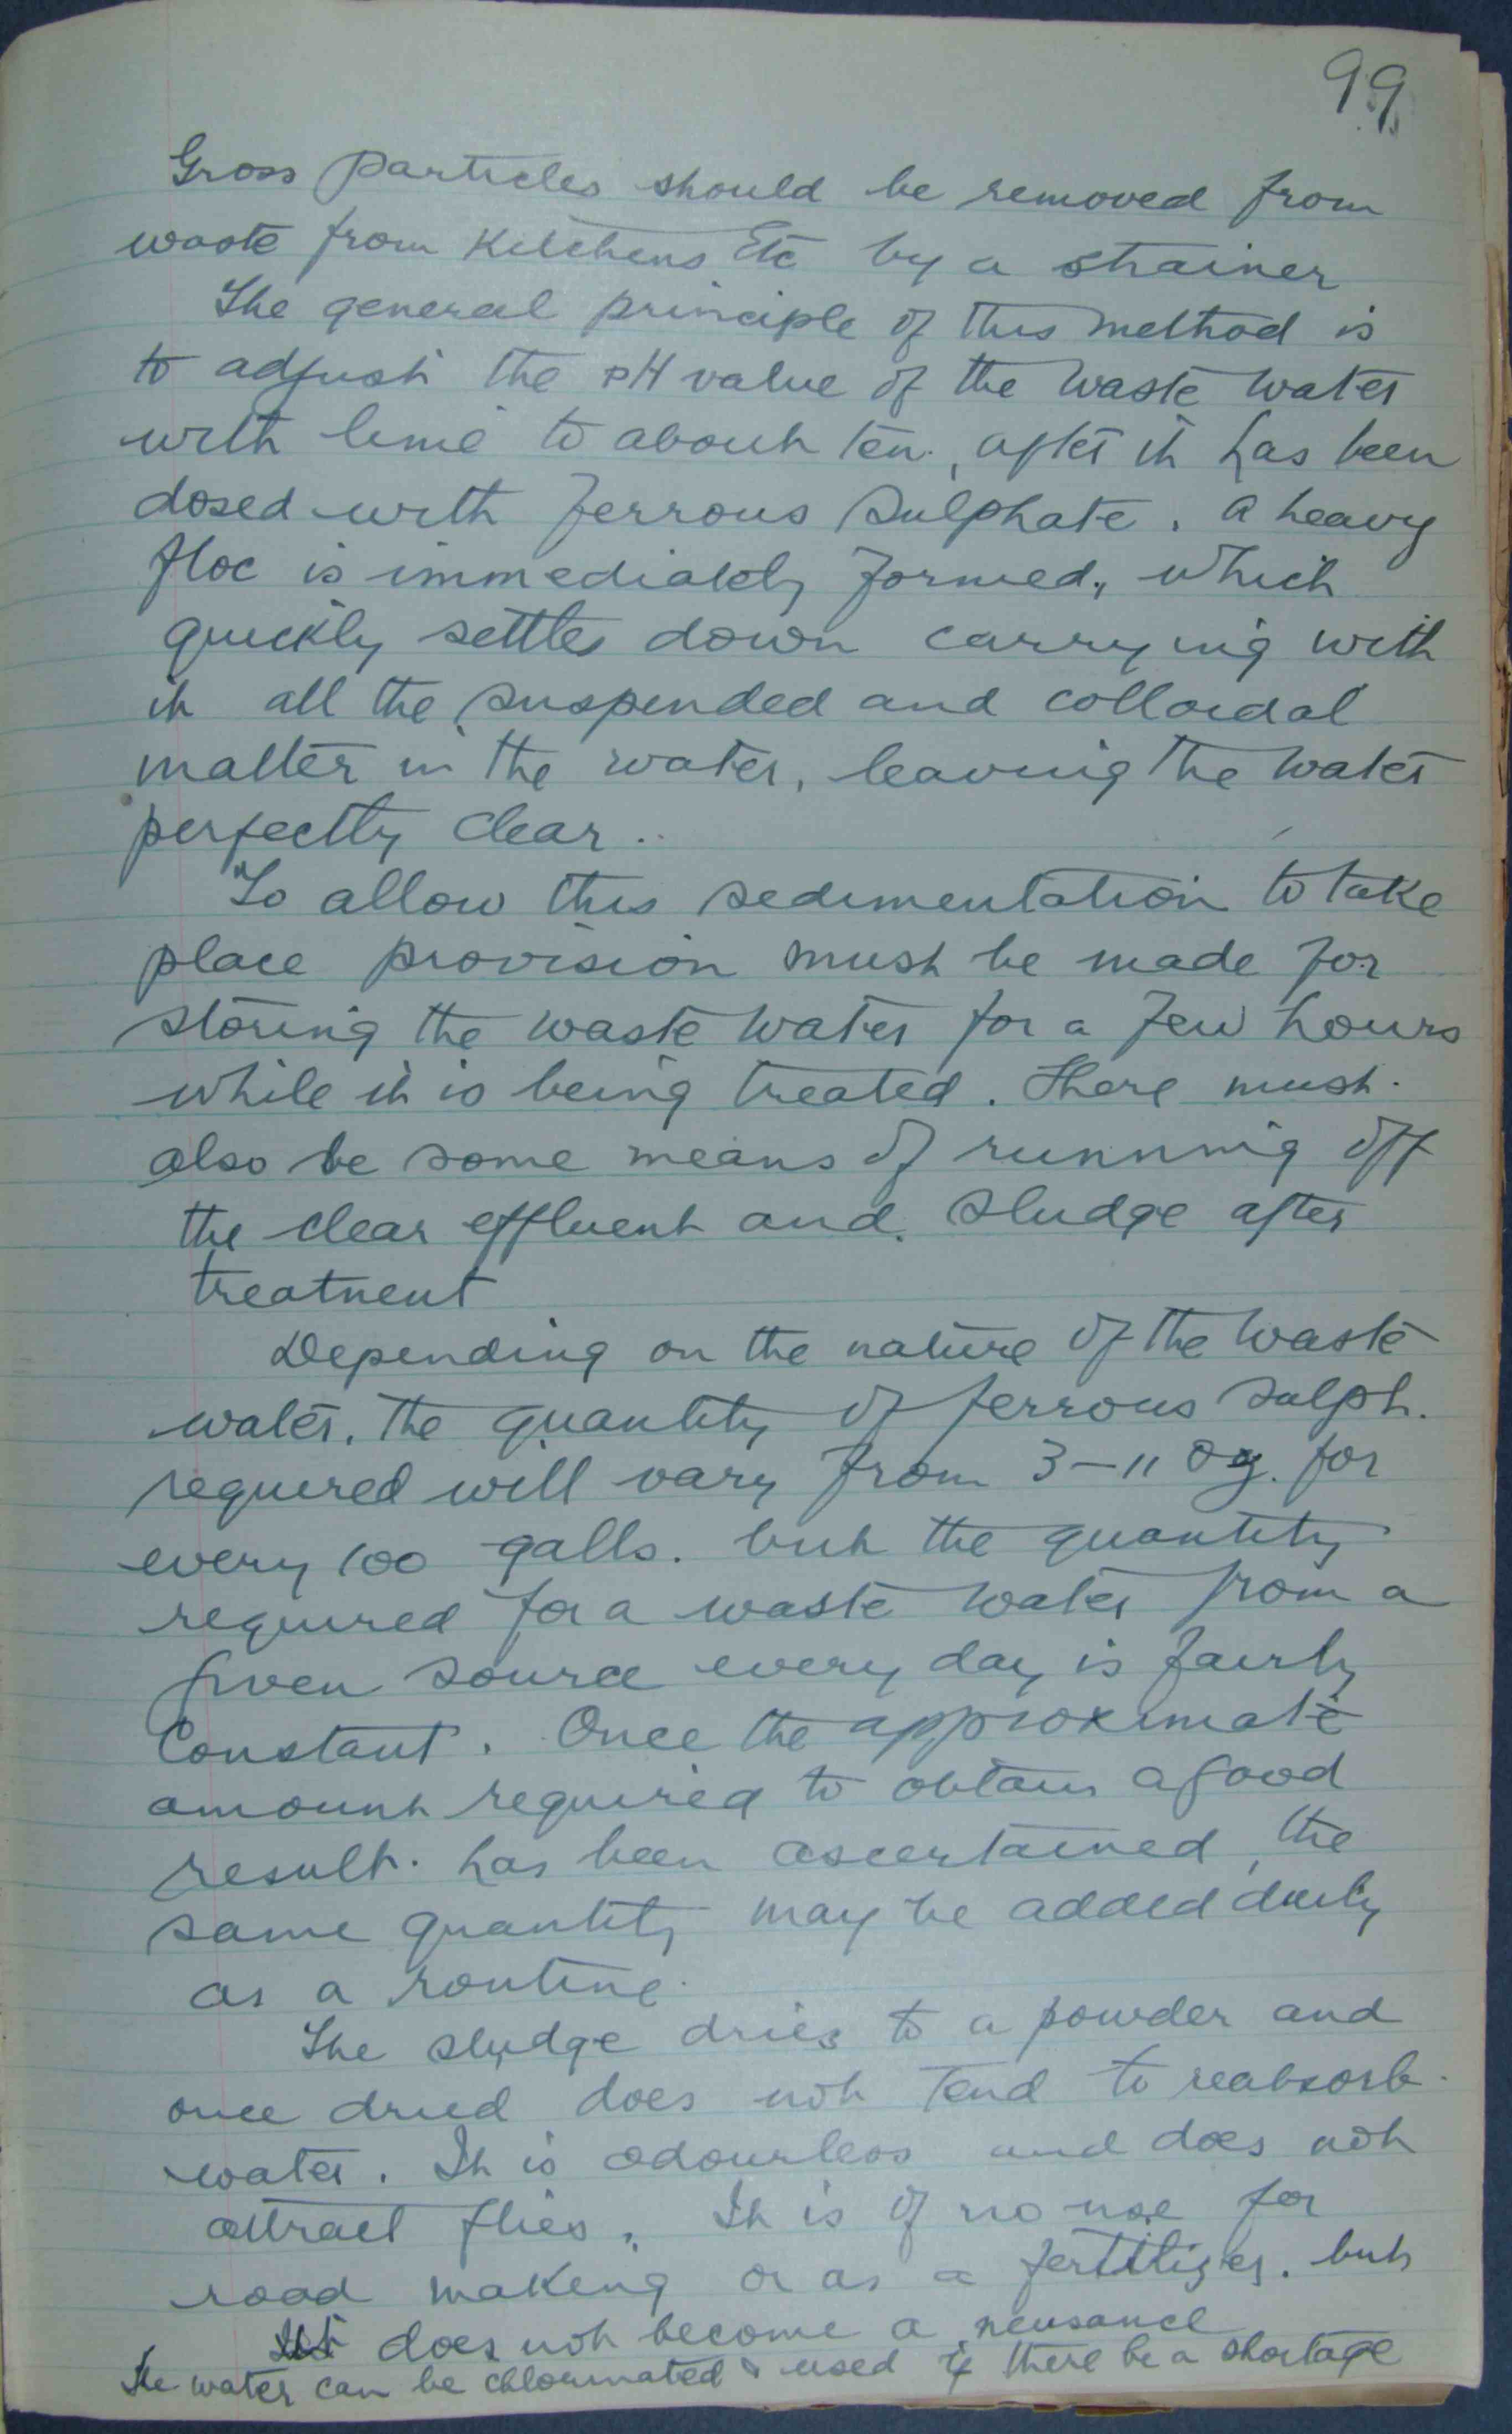 99
Gross particles should be removed from
waste from Kitchens Etc by a strainer
The general principle of this method is
to adjust the pH value of the waste water
with lime to about ten, after it has been
dosed with ferrous sulphate. A heavy
floc is immediately formed, which
quickly settles down carrying with
it all the suspended and colloidal
matter in the water, leaving the water
perfectly clear.
To allow this sedimentation to take
place provision must be made for
storing the waste water for a few hours
while it is being treated. There must
also be some means of running off
the clear effluent and sludge after
treatment
Depending on the nature of the waste
water, the quantity of ferrous sulph.
required will vary from 3-11 oz. for
every 100 galls. but the quantity
required for a waste water from a
given source every day is fairly
Constant. Once the approximate
amount required to obtain a good
result has been ascertained, the
same quantity may be added daily
as a routine.
The sludge dries to a powder and
once dried does not tend to reabsorb
water. It is odourless and does not
attract flies. It is of no use for
road making or as a fertilizer. but
does not become a neusance
The water can be chlorinated & used if there be a shortage